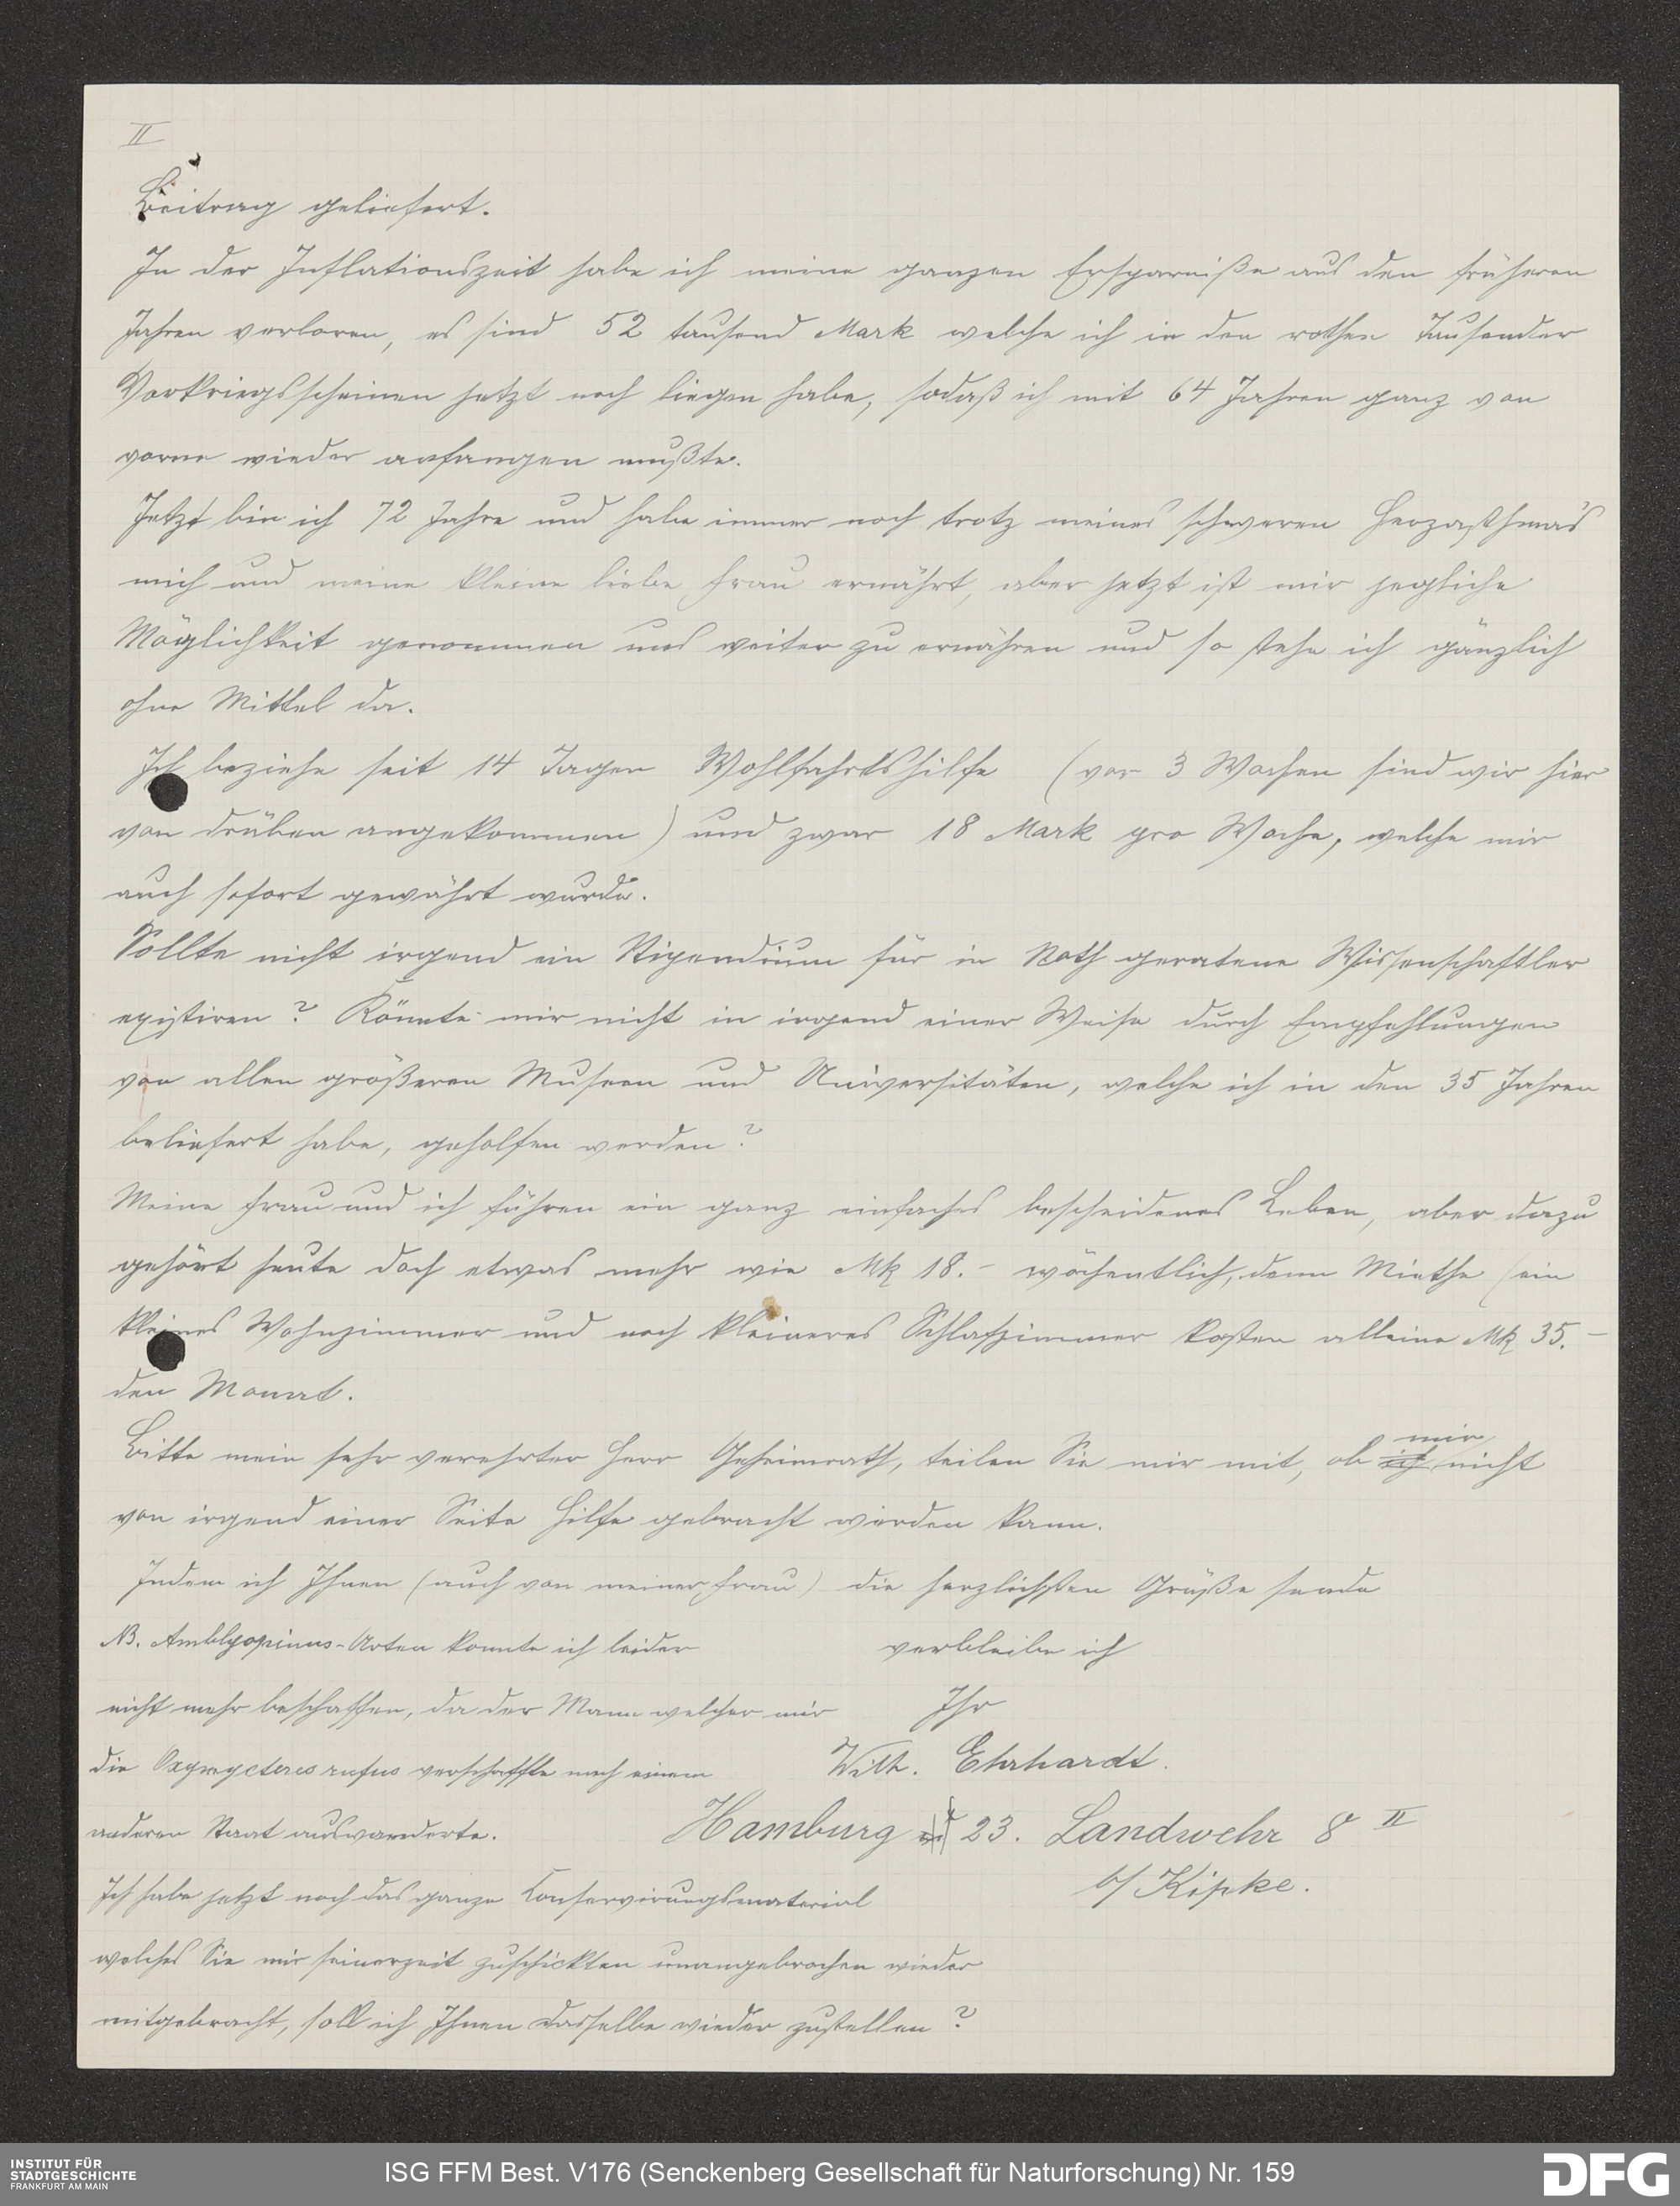 II
Beitrag geliefert.
In der Inflationszeit habe ich meine ganzen Ersparniße aus den früheren
Jahren verloren, es sind 52 tausend Mark welche ich in den rothen Tausender
Vorkriegsscheinen jetzt noch liegen habe, sodaß ich mit 64 Jahren ganz von
vorne wieder anfangen mußte.
Jetzt bin ich 72 Jahre und habe immer noch trotz meines schweren Herzasthma's
mich und meine kleine liebe Frau ernährt, aber jetzt ist mir jegliche
Möglichkeit genommen uns weiter zu ernähren und so stehe ich gänzlich
ohne Mittel da.
Ich beziehe seit 14 Tagen Wohlfahrtshilfe (vor 3 Wochen sind wir hier
von drüben angekommen) und zwar 18 Mark pro Woche, welche mir
auch sofort gewährt wurde.
Sollte nicht irgend ein Stipendium für in Noth geratene Wissenschaftler
existiren? Könnte mir nicht in irgend einer Weise durch Empfehlungen
von allen größeren Museen und Universitäten, welche ich in den 35 Jahren
beliefert habe, geholfen werden?
Meine Frau und ich führen ein ganz einfaches bescheidenes Leben, aber dazu
gehört heute doch etwas mehr wie Mk 18.- wöchentlich, denn Miethe (ein
kleines Wohnzimmer und noch kleineres Schlafzimmer kosten alleine Mk 35.-
den Monat.
Bitte mein sehr verehrter Herr Geheimrath, teilen Sie mir mit, ob ich mir nicht
von irgend einer Seite Hilfe gebracht werden kann.
Indem ich Ihnen (auch von meiner Frau) die herzlichsten Grüße sende
verbleibe ich
Ihr
Wilh. Ehrhardt.
Hamburg 23. Landwehr 8 II
b/ Kipke.
NB. Amblyopinus-Arten konnte ich leider
nicht mehr beschaffen, da der Mann welcher mir
die Oxymycterus rufus verschaffte nach einem
anderen Staat auswanderte.
Ich habe jetzt noch das ganze Conservirungsmaterial
welches Sie mir seinerzeit zuschickten unangebrochen wieder
mitgebracht, soll ich Ihnen dasselbe wieder zustellen?
INSTITUT FÜR
STADTGESCHICHTE
FRANKFURT AM MAIN
ISG FFM Best. V176 (Senckenberg Gesellschaft für Naturforschung) Nr. 159
DFG